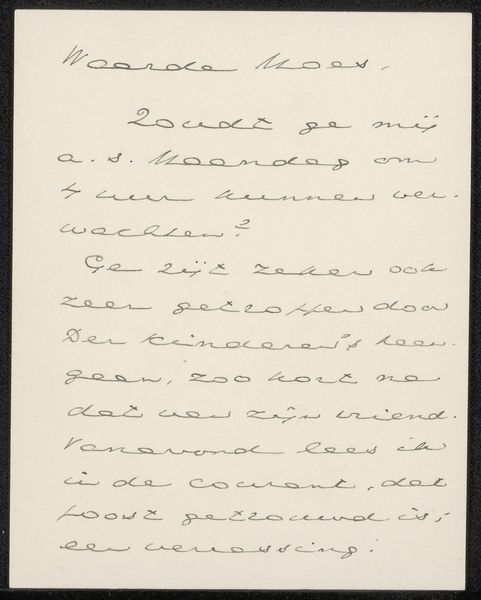 Waarde Moes,
Zoudt ge mij
a.s. Maandag om
4 uur kunnen ver-
wachten?
Ge zijt zeker ook
zeer getroffen door
Der Kinderen's heen-
gaan, zoo kort na
dat van zijn vriend.
Vanavond lees ik
in de courant, dat
Joost getrouwd is;
een verrassing!